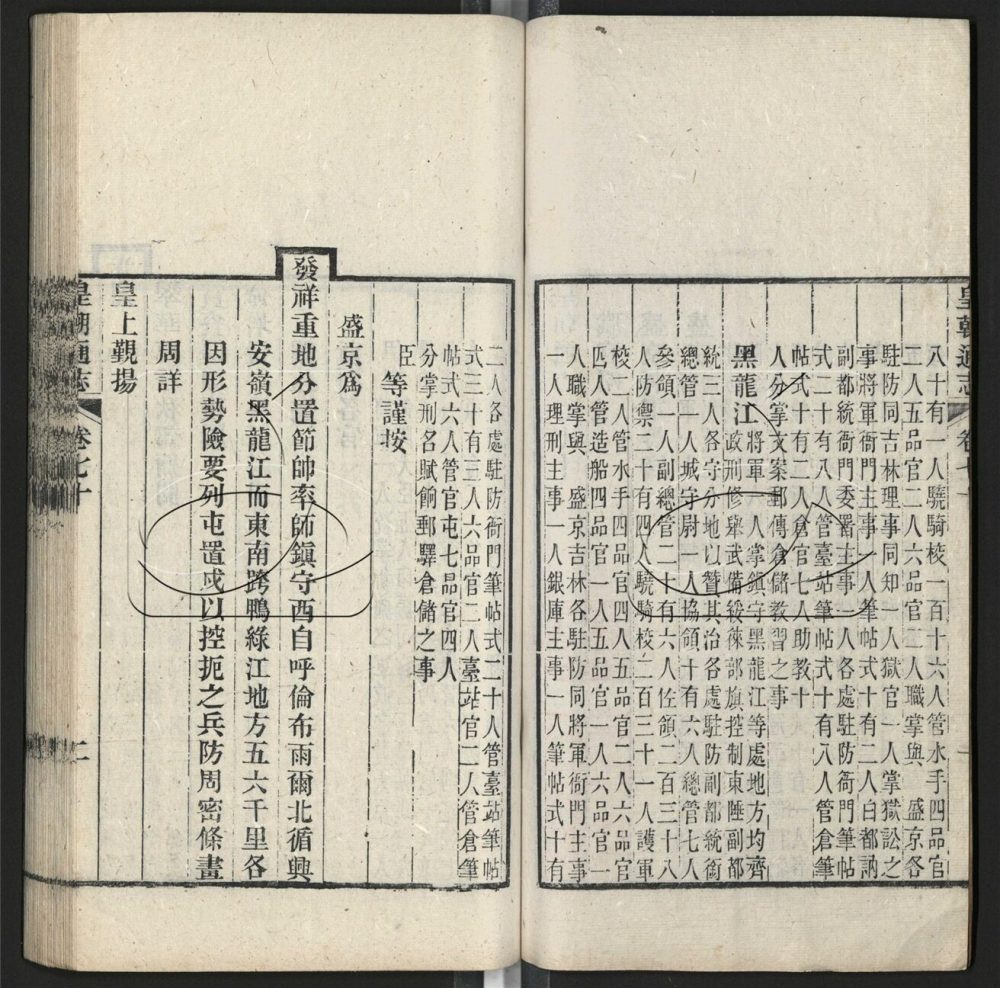 皇朝通志　卷七十　一
八十有一人驍騎校一百十六人管水手四品官
二人五品官二人六品官二人職掌與　盛京各
駐防同吉林理事同知一人獄官一人掌獄訟之
事將軍衙門主事一人筆帖式十有二人白都訥
副都統衙門委署主事一人各處駐防衙門筆帖
式二十有八人管臺站筆帖式十有八人管倉筆
帖式十有二人倉官七人助教十
人分掌文案郵傳倉儲教習之事
黑龍江將軍一人掌鎮守黑龍江等處地方均齊
政刑修舉武備綏徠部旗控制東陲副都
統三人各守分地以贊其治各處駐防副都統銜
總管一人城守尉一人協領十有六人總管七人
參領一人副總管二十有六人佐領二百三十八
人防禦二十有四人驍騎校二百三十一人護軍
校二人管水手四品官四人五品官二人六品官
四人管造船四品官一人五品官一人六品官一
人職掌與　盛京吉林各駐防同將軍衙門主事
一人理刑主事一人銀庫主事一人筆帖式十有
二人各處駐防衙門筆帖式二十人管臺站筆帖
式三十有三人六品官二人臺站官二人管倉筆
帖式六人管官屯七品官四人
分掌刑名賦餉郵驛倉儲之事
臣等謹按
盛京為
發祥重地分置節帥率師鎮守西自呼倫布雨爾北循興
安嶺黑龍江而東南跨鴨綠江地方五六千里各
因形勢險要列屯置戍以控扼之兵防周密條畫
周詳
皇上覲揚
皇朝通志　卷七十　二